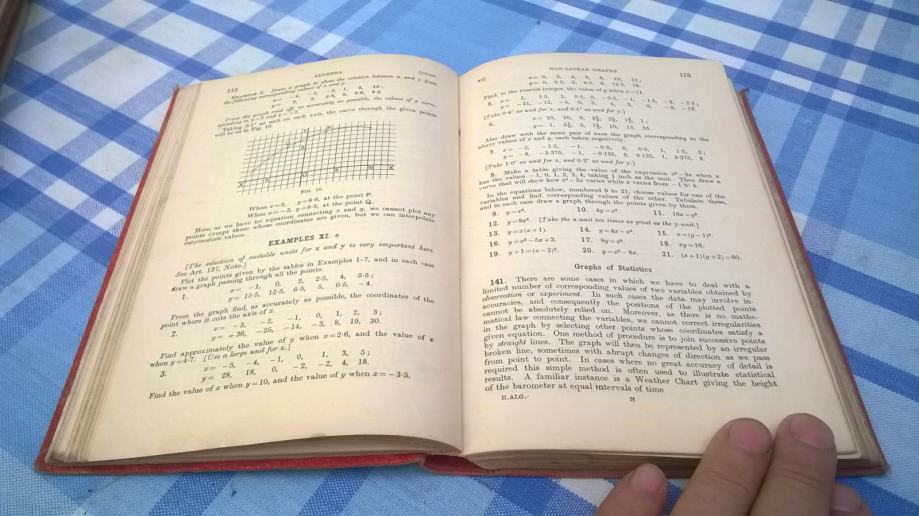 112
ALGEBRA
[CHAP.
EXAMPLE 2. Draw a graph to show the relation between x and y from
the following corresponding values of x and y.
From the graph read off, as accurately as possible, the values of y corre-
Taking 0·1" as unit on each axis, the curve through the given points
will be as in Fig. 10.
FIG. 10.
When x=3, y=8·6, at the point P.
When x=-3, y=6·3, at the point Q.
Here, as we have no equation connecting x and y, we cannot plot any
points except those whose coordinates are given, but we can interpolate
intermediate values.
EXAMPLES XI. e
[The selection of suitable units for x and y is very important here.
See Art. 137, Note.]
Plot the points given by the tables in Examples 1-7, and in each case
draw a graph passing through all the points.
1. x= -1, 0, 2, 2·5, 4, 5·5;
y= 15·5, 12·5, 6·5, 5, 0·5, -4.
From the graph find, as accurately as possible, the coordinates of the
point where it cuts the axis of x.
2. x= -3, -2, -1, 0, 1, 2, 3;
y= -36, -25, -14, -3, 8, 19, 30.
Find approximately the value of y when x=2·6, and the value of x
when y=4·7. [Use a large unit for x.]
3. x= -5, -4, -1, 0, 1, 3, 5;
y= 28, 18, 0, -2, -2, 4, 18.
Find the value of x when y=10, and the value of y when x=-3·5.
XI.]
NON-LINEAR GRAPHS
113
Find, to the nearest integer, the value of y when x=11.
[Take 0·4" as unit for x, and 0·1" as unit for y.]
6. x= 25, 10, 5, 3⅓, 2½, 1⅔, 1;
y= 1, 2½, 5, 7½, 10, 15, 25.
Also draw with the same pair of axes the graph corresponding to the
above values of x and y, each taken negatively.
7. x= -2, -1·5, -1, -0·5, 0, 0·5, 1, 1·5, 2;
y= -8, -3·375, -1, -0·125, 0, 0·125, 1, 3·375, 8.
[Take 1·0" as unit for x, and 0·2" as unit for y.]
8. Make a table giving the value of the expression x²-3x when x
has the values -1, 0, 1, 2, 3, 4, taking 1 inch as the unit. Then draw a
curve that will show how x²-3x varies while x varies from -1 to 4.
In the equations below, numbered 9 to 21, choose values for one of the
variables and find corresponding values of the other. Tabulate these,
and in each case draw a graph through the points given by them.
9. y=x². 10. 4y=x². 11. 16x=y².
12. y=8x². [Take the x-unit ten times as great as the y-unit.]
13. y=x(x+1). 14. y=4x-x². 15. x=(y-1)².
16. y=x²-5x+3. 17. 8y=x³. 18. xy=16.
19. y+1=(x-2)². 20. y=x³-8x. 21. (x+1)(y+2)=60.
Graphs of Statistics
141. There are some cases in which we have to deal with a
limited number of corresponding values of two variables obtained by
observation or experiment. In such cases the data may involve in-
accuracies, and consequently the positions of the plotted points
cannot be absolutely relied on. Moreover, as there is no mathe-
matical law connecting the variables, we cannot correct irregularities
in the graph by selecting other points whose coordinates satisfy a
given equation. One method of procedure is to join successive points
by straight lines. The graph will then be represented by an irregular
broken line, sometimes with abrupt changes of direction as we pass
from point to point. In cases where no great accuracy of detail is
required this simple method is often used to illustrate statistical
results. A familiar instance is a Weather Chart giving the height
of the barometer at equal intervals of time
H.ALG.
H